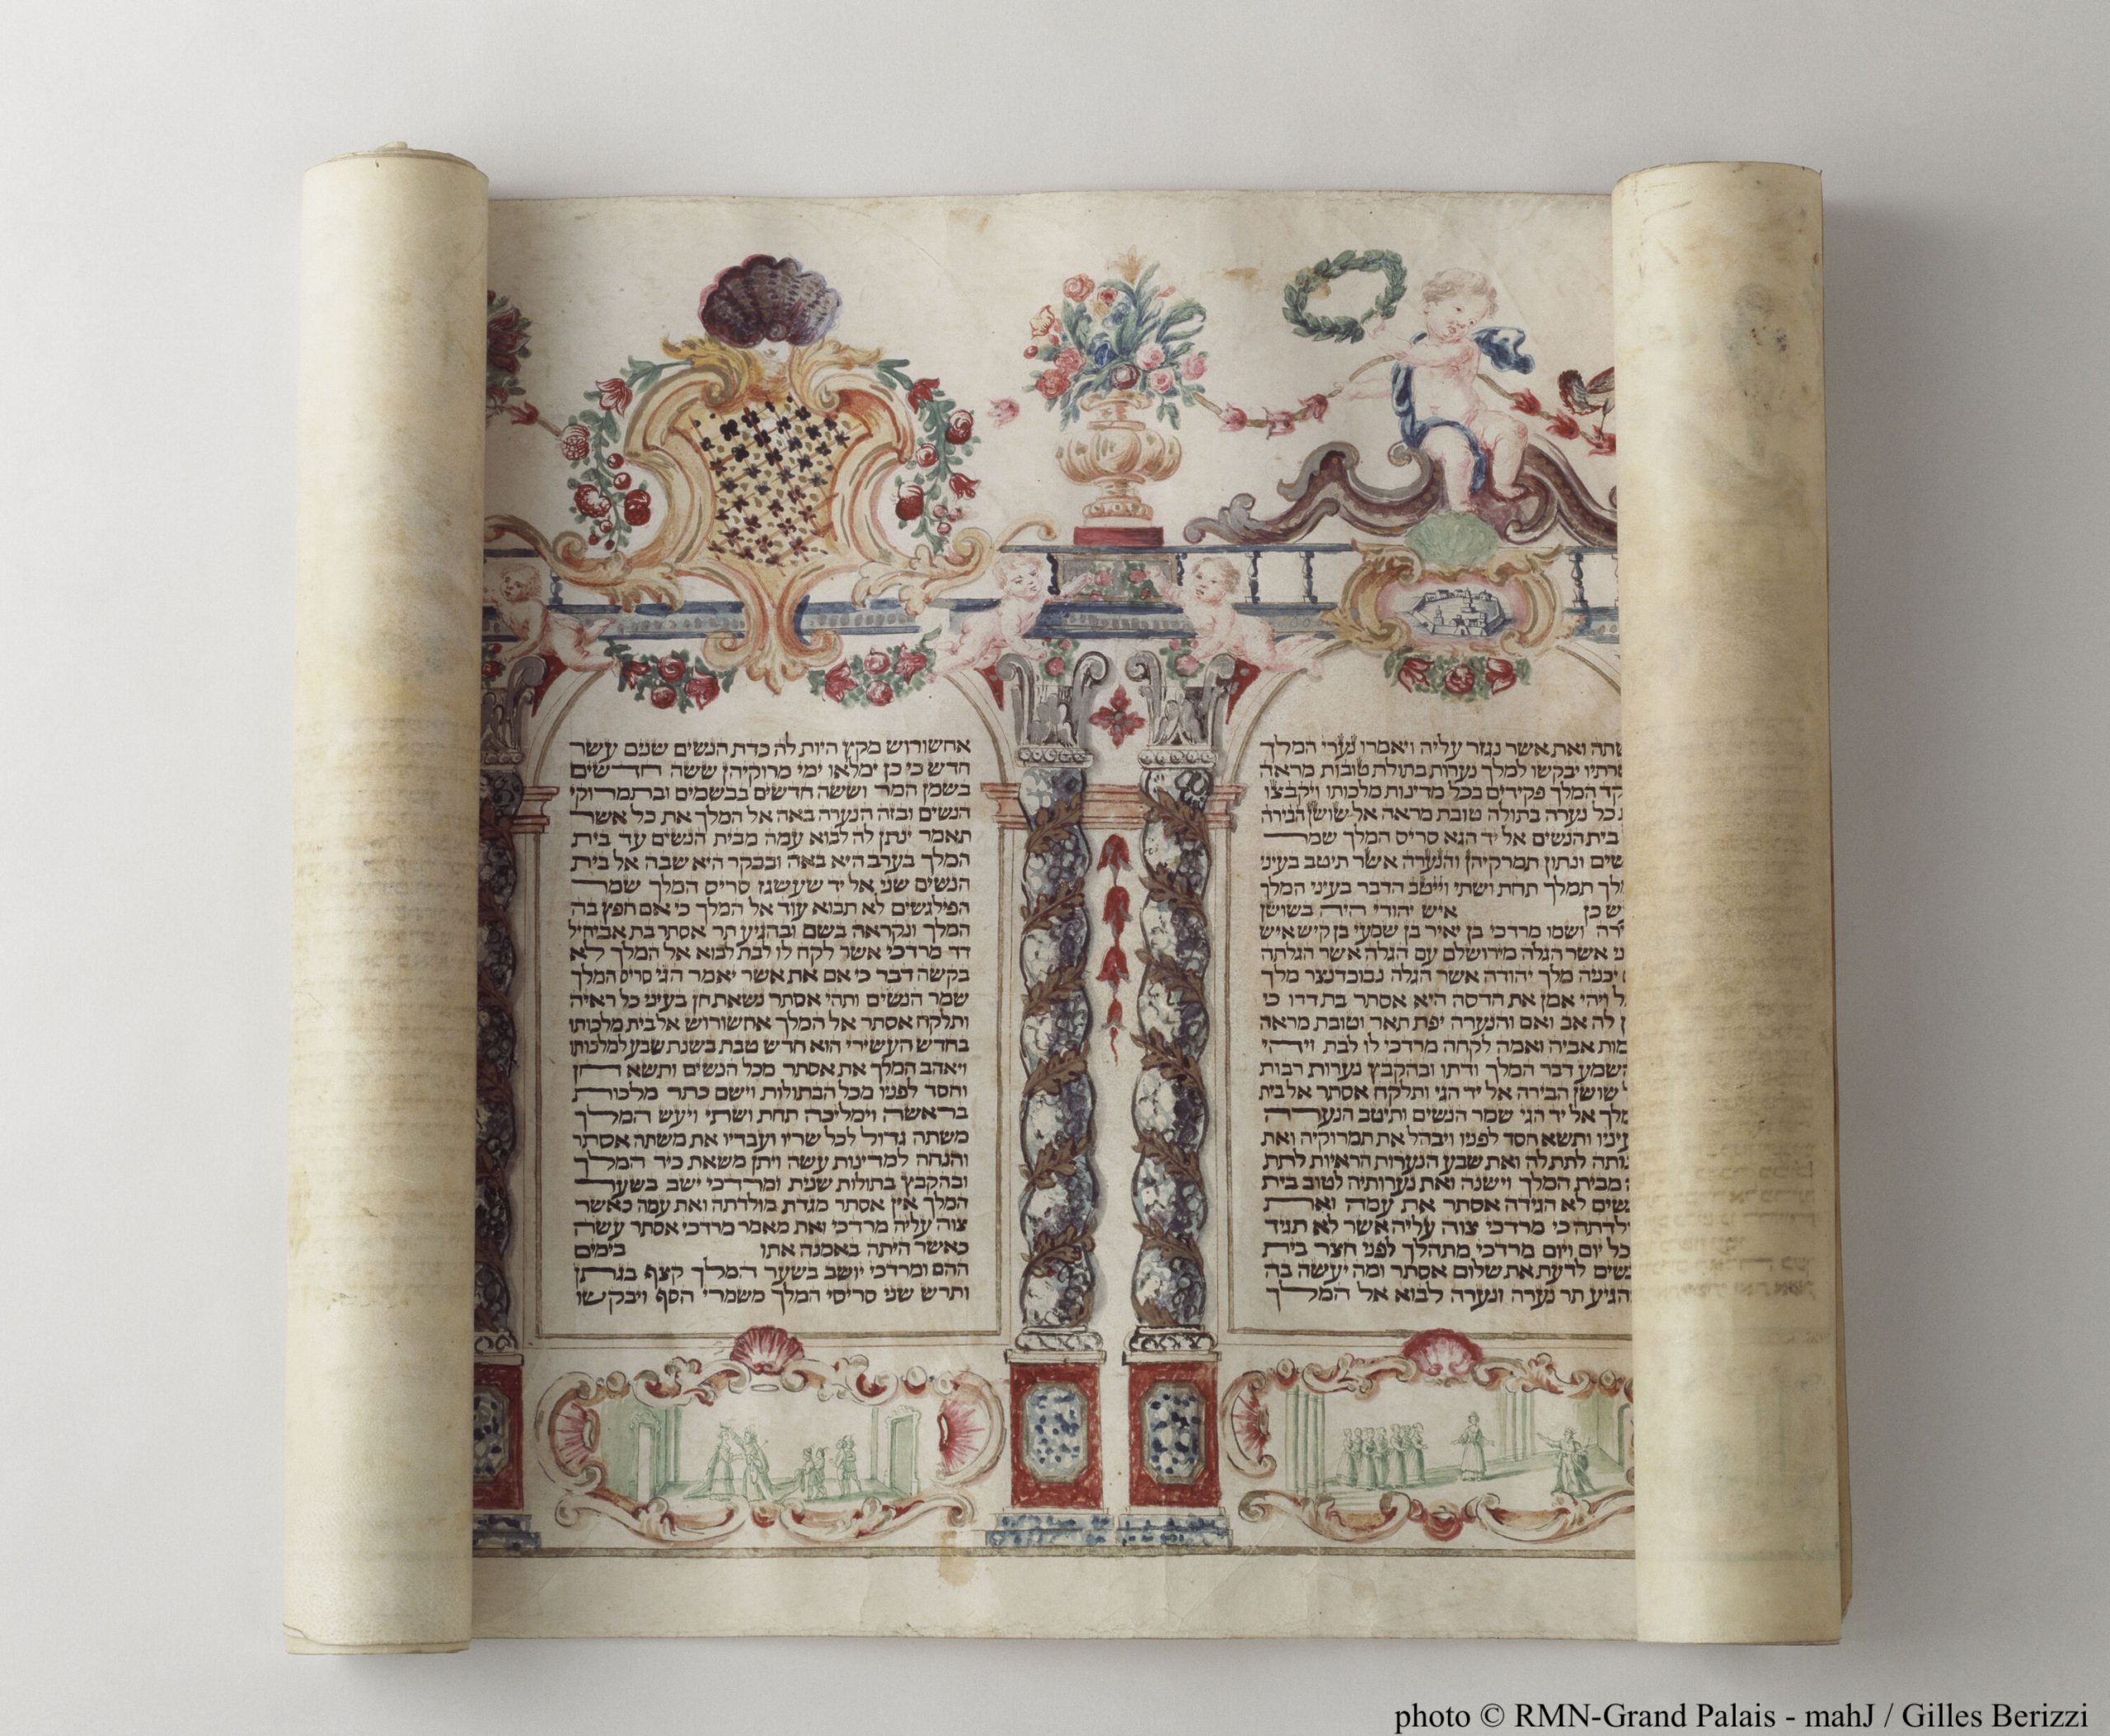 שתה ואת אשר נגזר עליה ויאמרו נערי המלך
רתיו יבקשו למלך נערות בתולת טובות מראה
קד המלך פקידים בכל מדינות מלכותו ויקבצו
כל נערה בתולה טובת מראה אל שושן הבירה
בית הנשים אל יד הגא סריס המלך שמר
שים ונתון תמרקיהן והנערה אשר תיטב בעיני
לך תמלך תחת ושתי וייטב הדבר בעיני המלך
ש כן איש יהודי היה בשושן
ירה ושמו מרדכי בן יאיר בן שמעי בן קיש איש
ני אשר הגלה מירושלם עם הגלה אשר הגלתה
יכניה מלך יהודה אשר הגלה נבוכדנצר מלך
ל ויהי אמן את הדסה היא אסתר בת דדו כי
ן לה אב ואם והנערה יפת תאר וטובת מראה
מות אביה ואמה לקחה מרדכי לו לבת ויהי
השמע דבר המלך ודתו ובהקבץ נערות רבות
שושן הבירה אל יד הגי ותלקח אסתר אל בית
מלך אל יד הגי שמר הנשים ותיטב הנערה
עיניו ותשא חסד לפניו ויבהל את תמרוקיה ואת
נותה לתת לה ואת שבע הנערות הראיות לתת
ה מבית המלך וישנה ואת נערותיה לטוב בית
שים לא הגידה אסתר את עמה ואת
לדתה כי מרדכי צוה עליה אשר לא תגיד
כל יום ויום מרדכי מתהלך לפני חצר בית
שים לדעת את שלום אסתר ומה יעשה בה
הגיע תר נערה ונערה לבוא אל המלך
אחשורוש מקץ היות לה כדת הנשים שנים עשר
חדש כי כן ימלאו ימי מרוקיהן ששה חדשים
בשמן המר וששה חדשים בבשמים ובתמרוקי
הנשים ובזה הנערה באה אל המלך את כל אשר
תאמר ינתן לה לבוא עמה מבית הנשים עד בית
המלך בערב היא באה ובבקר היא שבה אל בית
הנשים שני אל יד שעשגז סריס המלך שמר
הפילגשים לא תבוא עוד אל המלך כי אם חפץ בה
המלך ונקראה בשם ובהגיע תר אסתר בת אביחיל
דד מרדכי אשר לקח לו לבת לבוא אל המלך לא
בקשה דבר כי אם את אשר יאמר הגי סריס המלך
שמר הנשים ותהי אסתר נשאת חן בעיני כל ראיה
ותלקח אסתר אל המלך אחשורוש אל בית מלכותו
בחדש העשירי הוא חדש טבת בשנת שבע למלכותו
ויאהב המלך את אסתר מכל הנשים ותשא חן
וחסד לפניו מכל הבתולות וישם כתר מלכות
בראשה וימליכה תחת ושתי ויעש המלך
משתה גדול לכל שריו ועבדיו את משתה אסתר
והנחה למדינות עשה ויתן משאת כיד המלך
ובהקבץ בתולות שנית ומרדכי ישב בשער
המלך אין אסתר מגדת מולדתה ואת עמה כאשר
צוה עליה מרדכי ואת מאמר מרדכי אסתר עשה
כאשר היתה באמנה אתו בימים
ההם ומרדכי יושב בשער המלך קצף בגתן
ותרש שני סריסי המלך משמרי הסף ויבקשו
photo © RMN-Grand Palais - mahJ / Gilles Berizzi